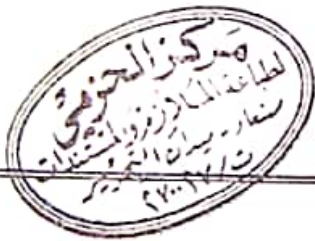 مركز الحزمي
لطباعة الملازم والمستندات
صنعاء - ميدان التحرير
ت/